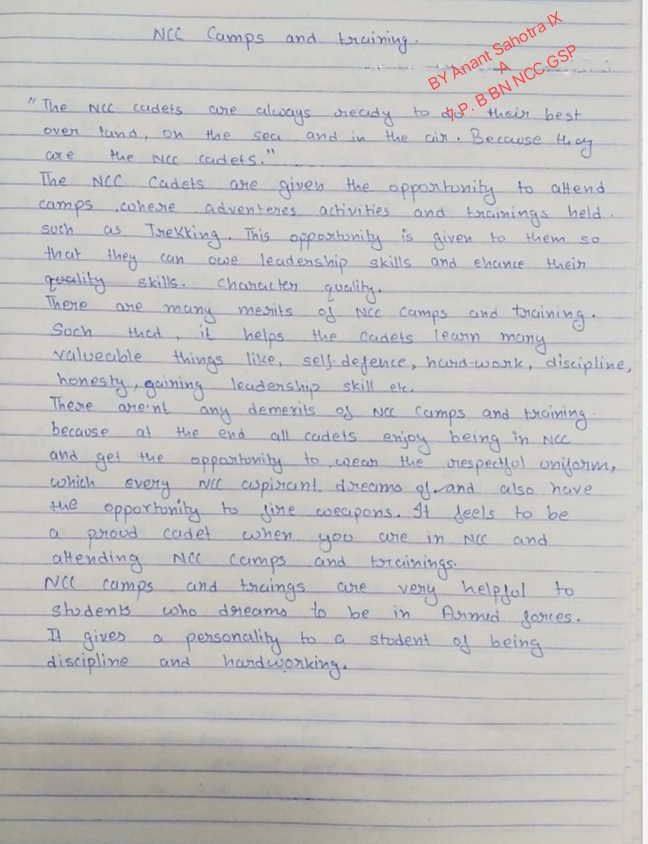 NCC Camps and training.
BY Anant Sahotra IX
A
7.P. B BN NCC GSP
"The NCC cadets are always ready to do their best
over land, on the sea and in the air. Because they
are the NCC cadets."
The NCC Cadets are given the opportunity to attend
camps where adventeres activities and trainings held.
such as Trekking. This opportunity is given to them so
that they can owe leadership skills and ehance their
quality skills. character quality.
There are many merits of NCC Camps and training.
Such that, it helps the cadets learn many
valueable things like, self-defence, hard-work, discipline,
honesty, gaining leadership skill etc.
There are'nt any demerits of NCC Camps and training.
because at the end all cadets enjoy being in NCC
and get the opportunity to wear the respectful uniform,
which every NCC aspirant dreams of and also have
the opportunity to fire weapons. It feels to be
a proud cadet when you are in NCC and
attending NCC camps and trainings.
NCC camps and traings are very helpful to
students who dreams to be in Armed forces.
It gives a personality to a student of being
discipline and hardworking.